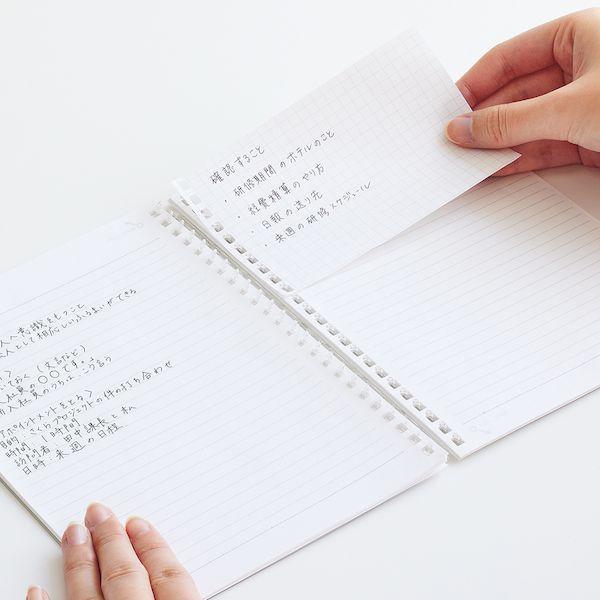 人へ意識をもつこと
人として相応しいふるまいができる
ておく（文言など）
入社員の〇〇です。」
アポイントメントをとる＞
目的：さくらプロジェクトの件の打ち合わせ
時間：1時間
訪問者：田中課長と私
日時：来週の日程
確認すること
・研修期間のホテルのこと
・経費精算のやり方
・日報の送り先
・来週の研修スケジュール